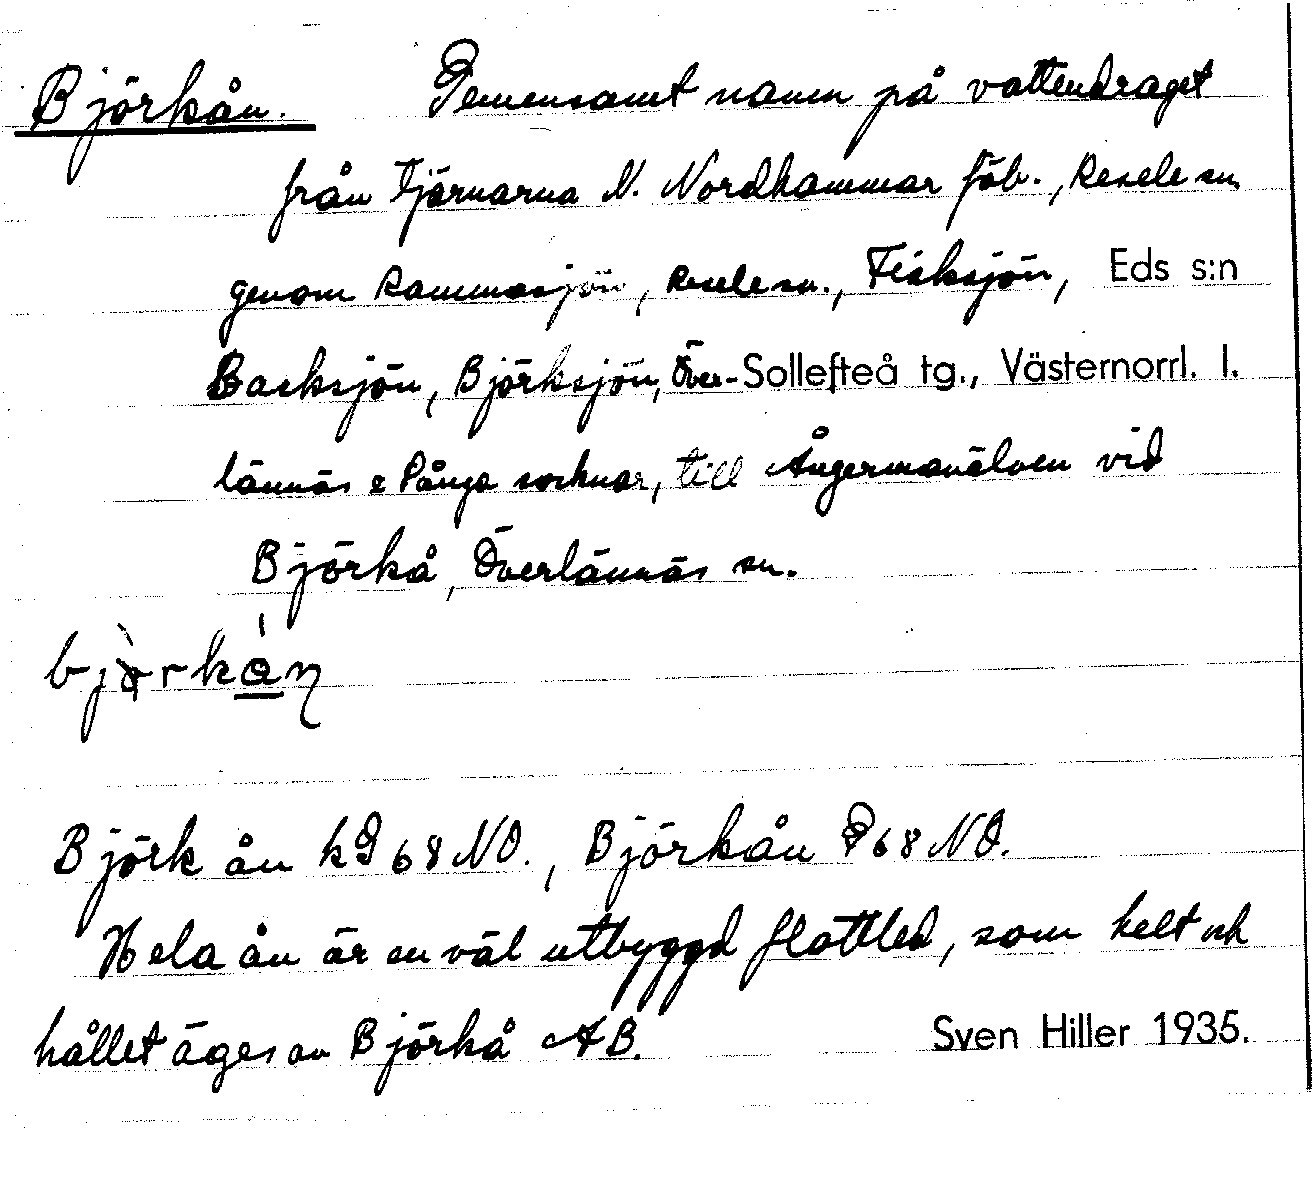 Björkån. Gemensamt namn på vattendraget
från tjärnarna N. Nordhammar fäb., Resele sn
genom Rammasjön, Resele sn., Fisksjön, Eds s:n
Backsjön, Björksjön, Över- Sollefteå tg., Västernorrl. l.
lännäs & Långa socknar, till Ångermanälven vid
Björkå, Överlännäs sn.
Björk ån kG 68 NO., Björkån G 68 NO.
Hela ån är en väl utbyggd flottled, som helt och
hållet äges av Björkå AB. Sven Hiller 1935.